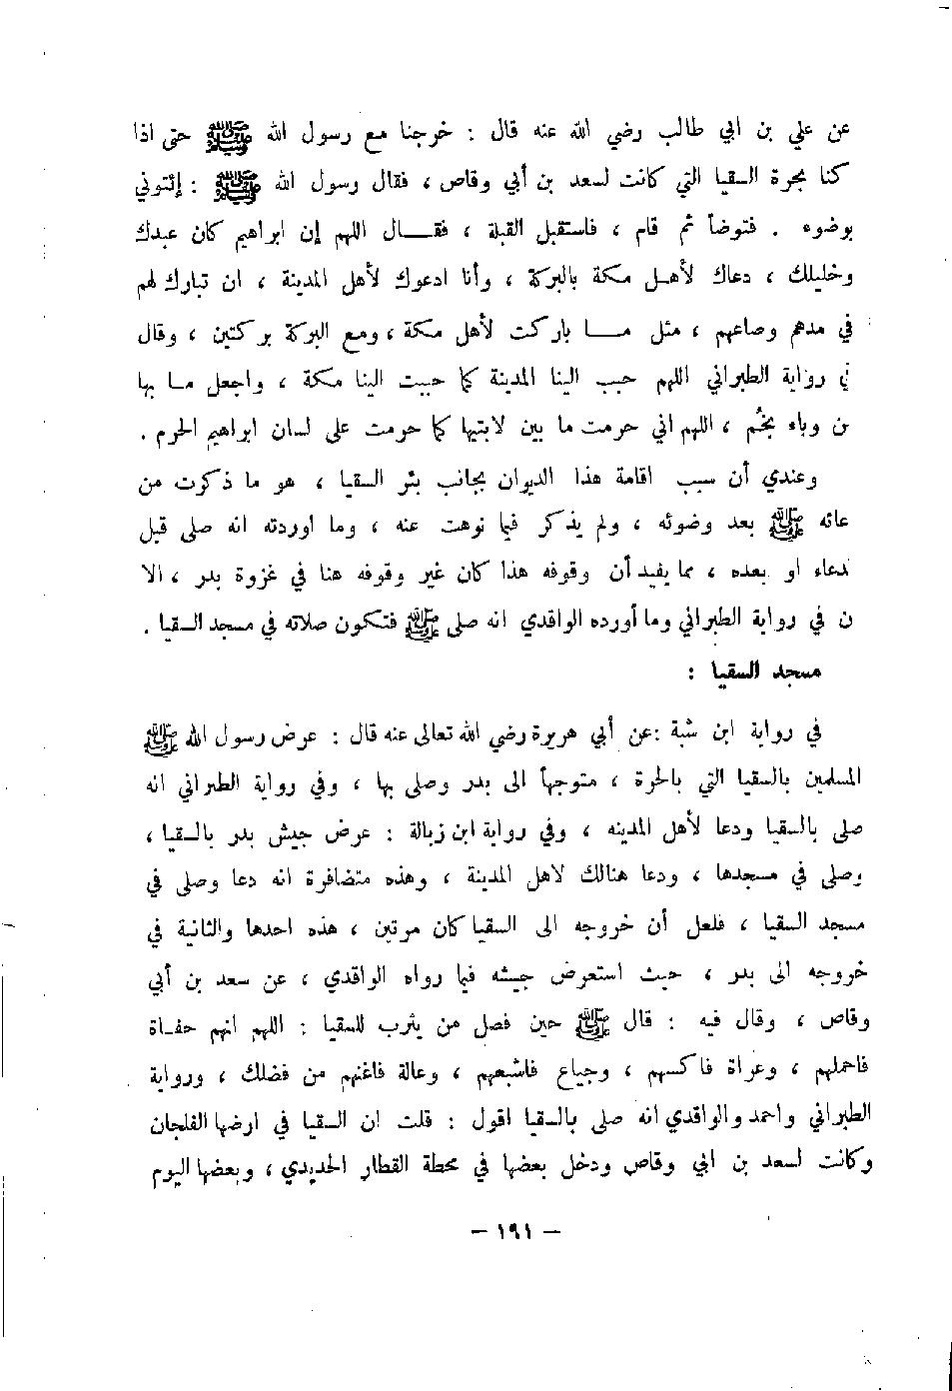 عن علي بن ابي طالب رضي الله عنه قال : خرجنا مع رسول الله ﷺ حتى اذا
كنا بحرة السقيا التي كانت لسعد بن أبي وقاص ، فقال رسول الله ﷺ : إئتوني
بوضوء . فتوضأ ثم قام ، فاستقبل القبلة ، فقـــال اللهم إن ابراهيم كان عبدك
وخليلك ، دعاك لأهـل مكة بالبركة ، وأنا ادعوك لأهل المدينة ، ان تبارك لهم
في مدهم وصاعهم ، مثل مـــا باركت لأهل مكة ، ومع البركة بركتين ، وقال
في رواية الطبراني اللهم حبب الينا المدينة كما حببت الينا مكة ، واجعل مـا بها
من وباء بخُم ، اللهم اني حرمت ما بين لابتيها كما حرمت على لسان ابراهيم الحرم .
وعندي أن سبب اقامة هذا الديوان بجانب بئر السقيا ، هو ما ذكرت من
عائه ﷺ بعد وضوئه ، ولم يذكر فيما نوهت عنه ، وما اوردته انه صلى قبل
لدعاء او بعده ، مما يفيد أن وقوفه هذا كان غير وقوفه هنا في غزوة بدر ، الا
ن في رواية الطبراني وما أورده الواقدي انه صلى ﷺ فتكون صلاته في مسجد السقيا .
مسجد السقيا :
في رواية ابن شبة : عن أبي هريرة رضي الله تعالى عنه قال : عرض رسول الله ﷺ
المسلمين بالسقيا التي بالحرة ، متوجهاً الى بدر وصلى بها ، وفي رواية الطبراني انه
صلى بالسقيا ودعا لأهل المدينه ، وفي رواية ابن زبالة : عرض جيش بدر بالسقيا ،
وصلى في مسجدها ، ودعا هنالك لاهل المدينة ، وهذه متضافرة انه دعا وصلى في
مسجد السقيا ، فلعل أن خروجه الى السقيا كان مرتين ، هذه احدها والثانية في
خروجه الى بدر ، حيث استعرض جيشه فيما رواه الواقدي ، عن سعد بن أبي
وقاص ، وقال فيه : قال ﷺ حين فصل من يثرب للسقيا : اللهم انهم حفـاة
فاحملهم ، وعراة فاكسهم ، وجياع فاشبعهم ، وعالة فاغنهم من فضلك ، ورواية
الطبراني واحمد والواقدي انه صلى بالسقيا اقول : قلت ان السقيا في ارضها الفلجان
وكانت لسعد بن ابي وقاص ودخل بعضها في محطة القطار الحديدي ، وبعضها اليوم
— ١٩١ —